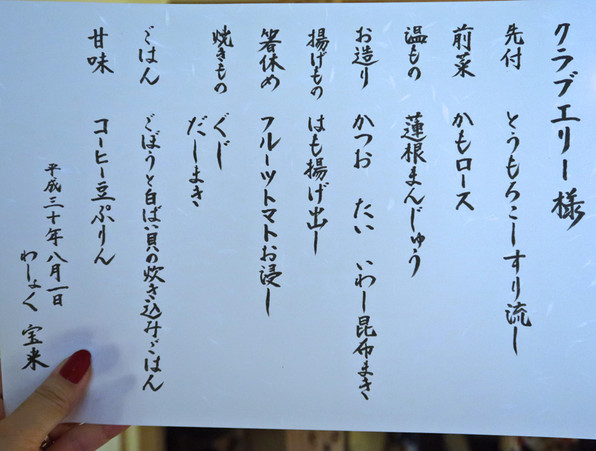 クラブエリー様
先付 とうもろこしすり流し
前菜 かもロース
温もの 蓮根まんじゅう
お造り かつお たい いわし昆布まき
揚げもの はも揚げ出し
箸休め フルーツトマトお浸し
焼きもの ぐじ
だしまき
ごはん ごぼうと白ばい貝の炊き込みごはん
甘味 コーヒー豆ぷりん
平成三十年八月一日
わしょく 宝来